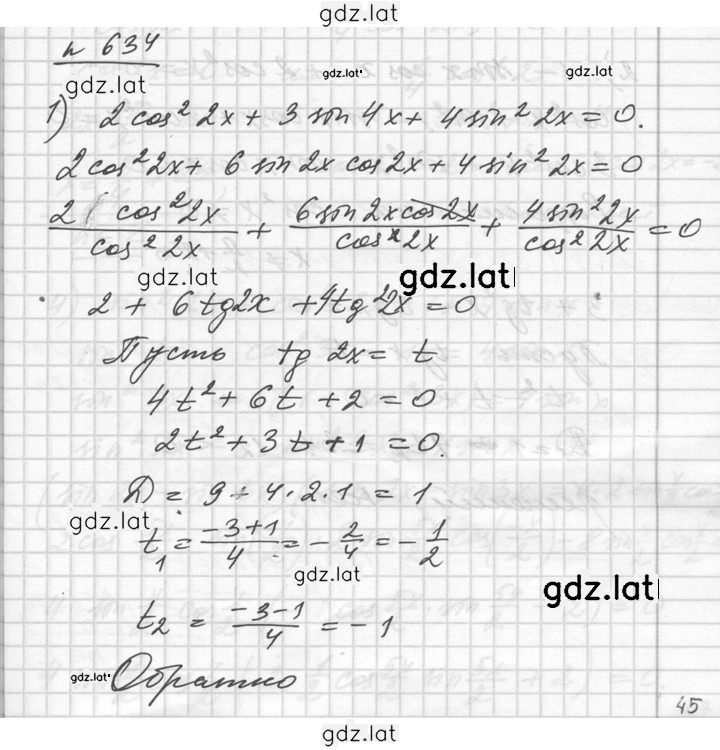 gdz.lat
n 634
gdz.lat gdz.lat gdz.lat
1) 2 cos² 2x + 3 sin 4x + 4 sin² 2x = 0.
2 cos² 2x + 6 sin 2x cos 2x + 4 sin² 2x = 0
2 cos² 2x / cos² 2x + 6 sin 2x cos 2x / cos² 2x + 4 sin² 2x / cos² 2x = 0
gdz.lat gdz.lat
2 + 6 tg 2x + 4 tg² 2x = 0
Пусть tg 2x = t
4t² + 6t + 2 = 0
2t² + 3t + 1 = 0.
D = 9 + 4·2·1 = 1
gdz.lat
t₁ = (-3+1)/4 = -2/4 = -1/2
gdz.lat gdz.lat
t₂ = (-3-1)/4 = -1
gdz.lat Обратно
45
gdz.lat